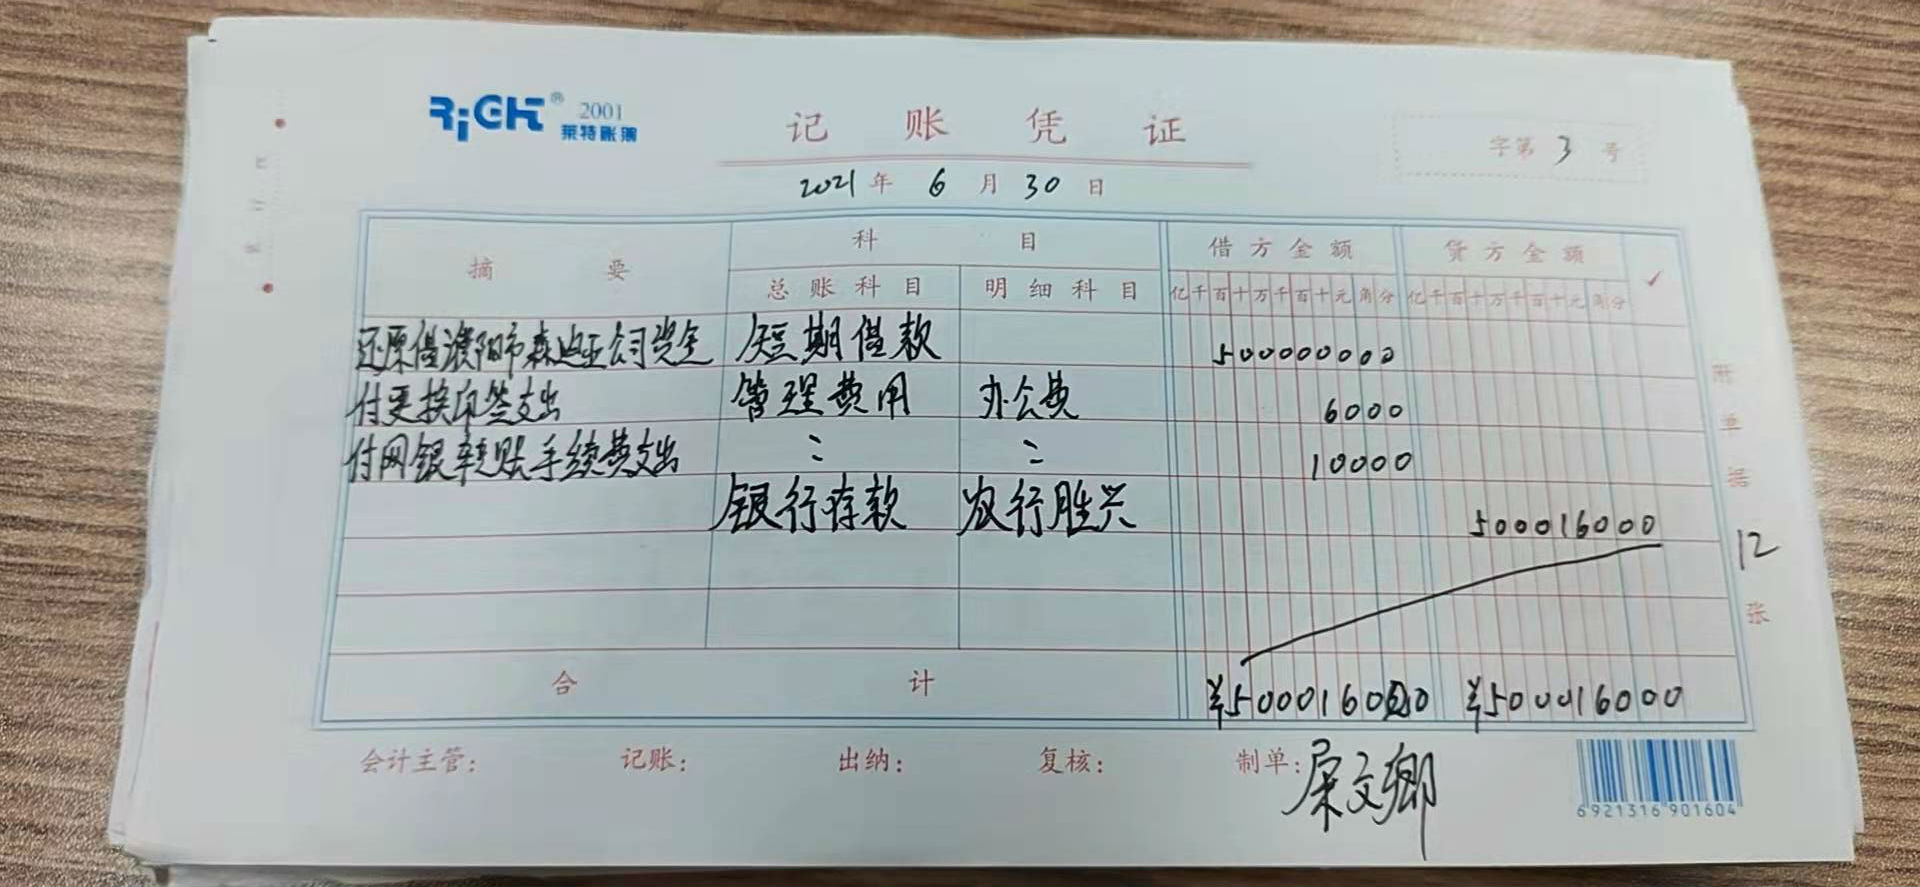 RiGHT® 2001
莱特账簿
记账凭证
字第 3 号
2021 年 6 月 30 日
摘要 科目 借方金额 贷方金额 ✓
总账科目 明细科目 亿千百十万千百十元角分 亿千百十万千百十元角分
还原借濮阳市森迪亚公司资金 短期借款 500000000
付更换印签支出 管理费用 办公费 6000
付网银转账手续费支出 〃 〃 10000
银行存款 农行胜兴 500016000
附单据 12 张
合计 ¥500016000 ¥500016000
会计主管: 记账: 出纳: 复核: 制单: 屈文卿
6 921316 901604